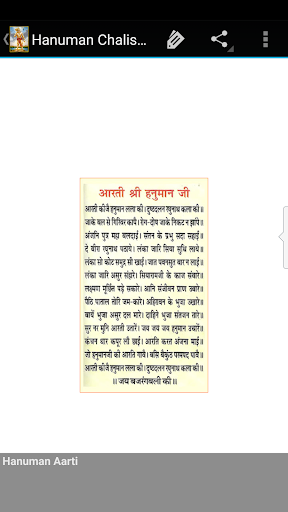 Hanuman Chalis...
आरती श्री हनुमान जी
आरती कीजै हनुमान लला की। दुष्टदलन रघुनाथ कला की॥
जाके बल से गिरिवर कांपै। रोग-दोष जाके निकट न झांपै॥
अंजनि पुत्र महा बलदाई। संतन के प्रभु सदा सहाई॥
दे बीरा रघुनाथ पठाये। लंका जारि सिया सुधि लाये॥
लंका सो कोट समुद्र सी खाई। जात पवनसुत बार न लाई॥
लंका जारि असुर संहारे। सियारामजी के काज संवारे॥
लक्ष्मण मूर्छित पड़े सकारे। आनि संजीवन प्राण उबारे॥
पैठि पाताल तोरि जम-कारे। अहिरावन के भुजा उखारे॥
बायें भुजा असुर दल मारे। दाहिने भुजा संतजन तारे॥
सुर नर मुनि आरती उतारें। जय जय जय हनुमान उचारें॥
कंचन थार कपूर लौ छाई। आरति करत अंजना माई॥
जो हनुमानजी की आरति गावै। बसि बैकुंठ परमपद पावै॥
आरती कीजै हनुमान लला की। दुष्टदलन रघुनाथ कला की॥
॥ जय बजरंगबली की ॥
Hanuman Aarti